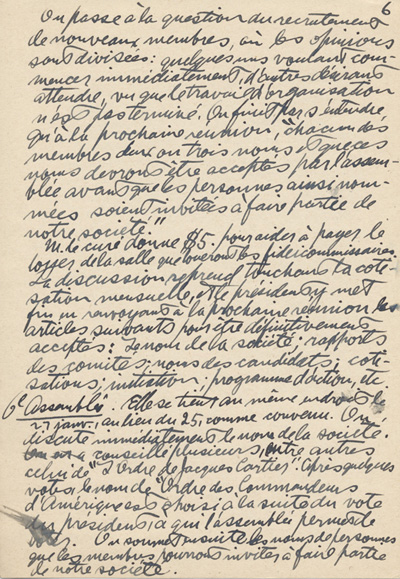 6
On passe à la question du recrutement
de nouveaux membres, où les opinions
sont divisées: quelques uns voulant com-
mencer immédiatement, d'autres désirant
attendre, vu que le travail d'organisation
n'est pas terminé. On finit par s'entendre
qu'à la prochaine réunion, "chacun des
membres deux ou trois noms et que ces
noms devront être acceptés par l'assem-
blée avant que les personnes ainsi nom-
mées soient invitées à faire partie de
notre société."
M. le curé donne $5. pour aider à payer le
loyer de la salle que loueront les fidéicommissaires.
La discussion reprend touchant la coti-
sation mensuelle, et le président y met
fin en renvoyant à la prochaine réunion les
articles suivants pour être définitivement
acceptés: Le nom de la société; rapports
des comités; noms des candidats; coti-
sations; initiation; programme d'action, etc.
6e Assemblée. Elle se tient au même endroit le
27 janv., au lieu du 25, comme convenu. On
discute immédiatement le nom de la société.
On en a conseillé plusieurs, entre autres
celui de "L'Ordre de Jacques Cartier". Après quelques
votes, le nom de "Ordre des Commandeurs
d'Amérique" est choisi à la suite du vote
du président, à qui l'assemblée permet de
voter. On soumet ensuite les noms de personnes
que les membres pourront inviter à faire partie
de notre société.